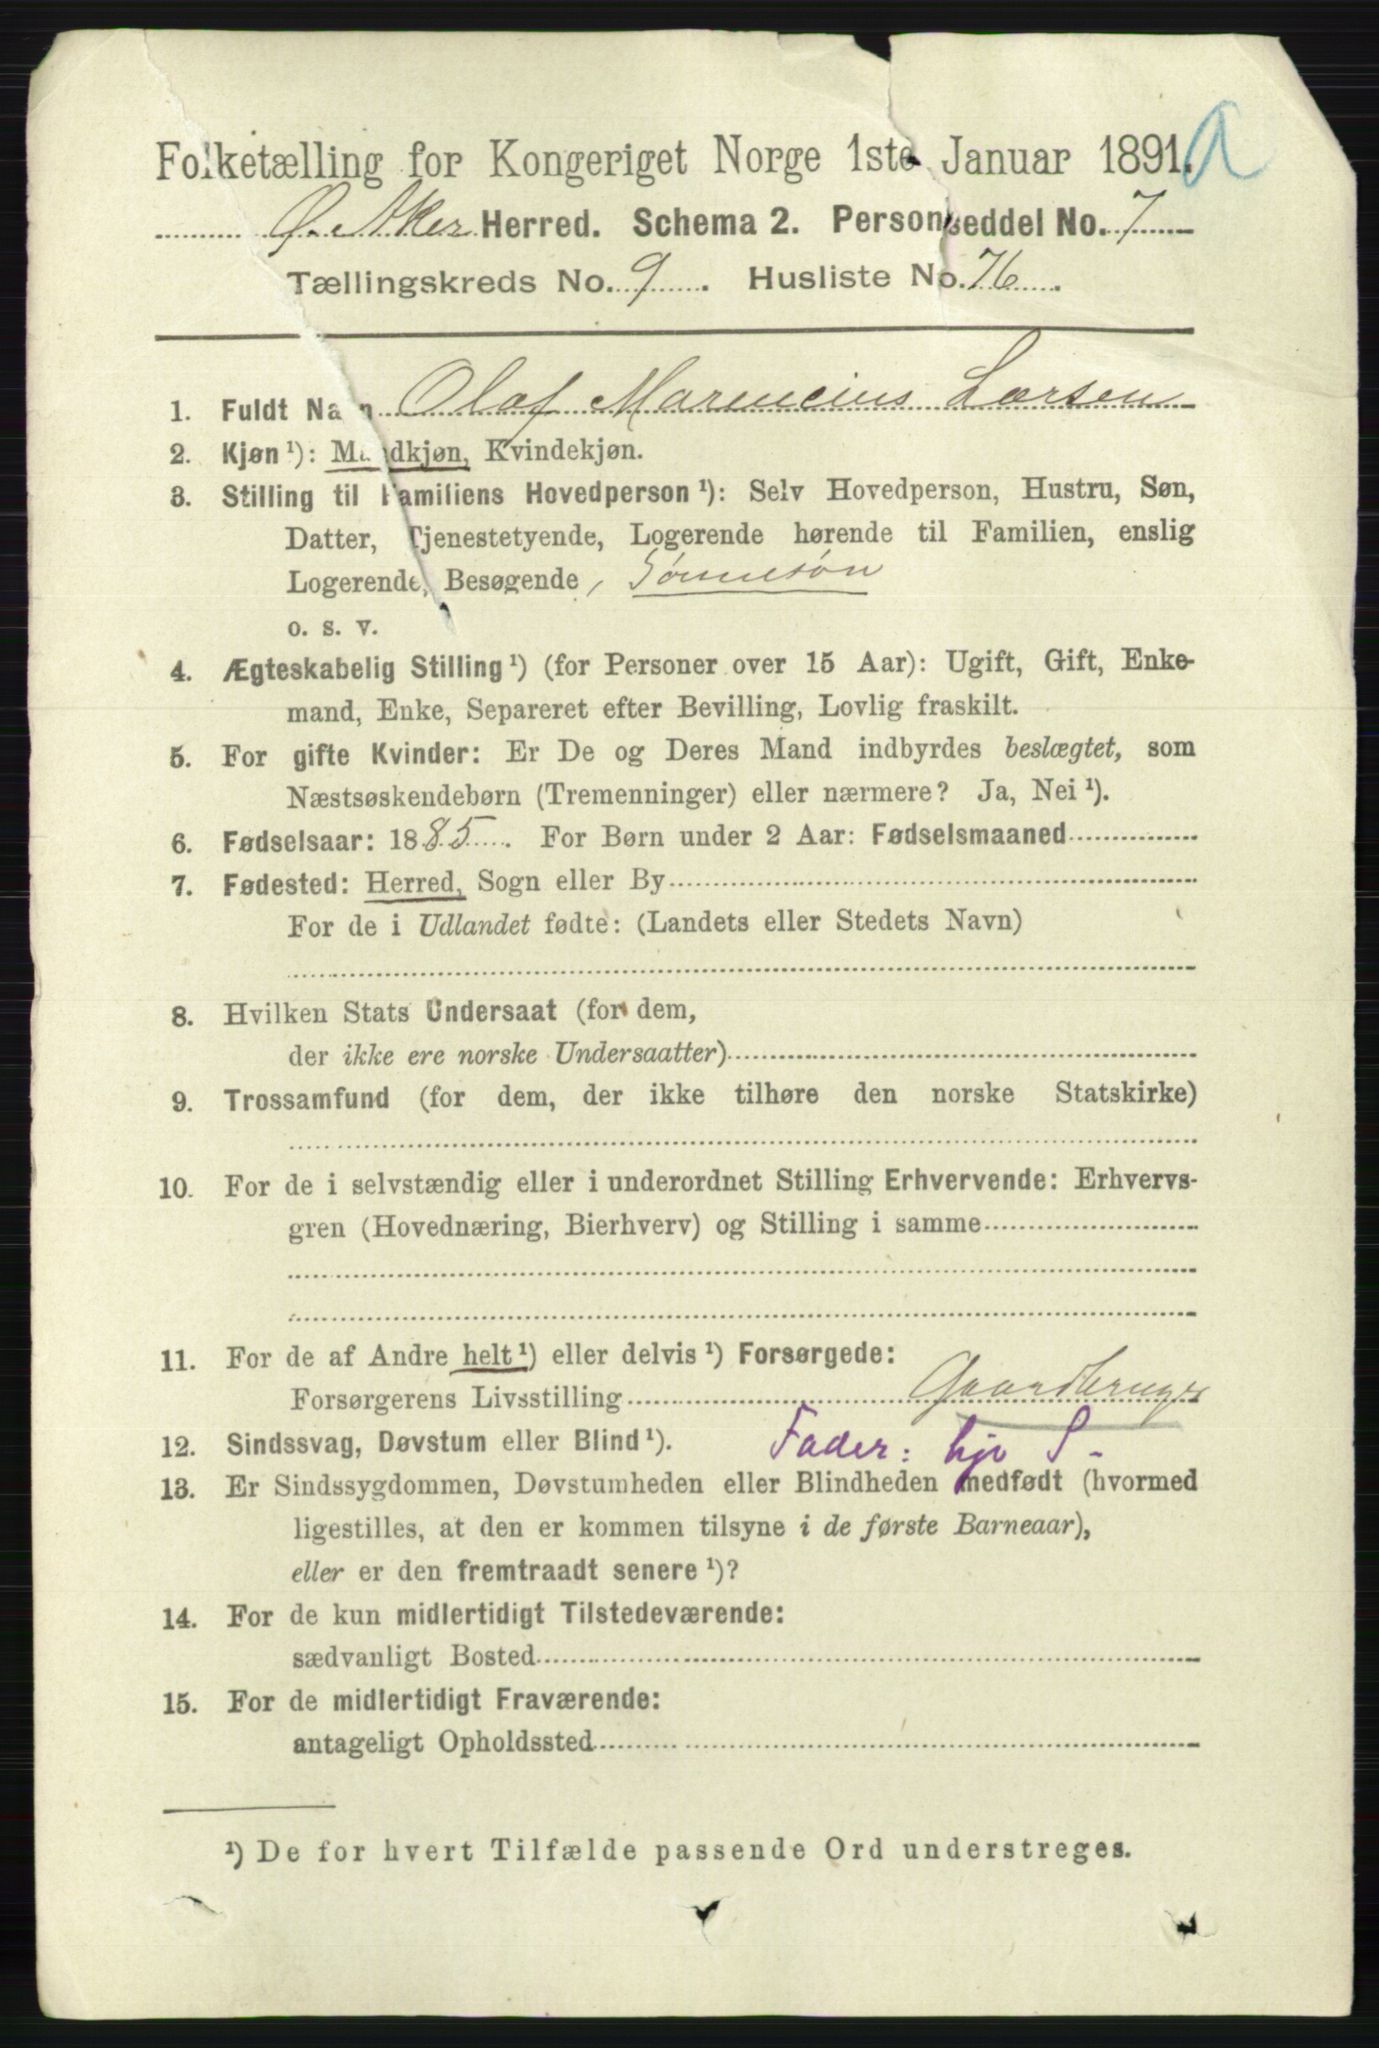 Folketælling for Kongeriget Norge 1ste Januar 1891.
Ø. Aker Herred. Schema 2. Personseddel No. 7
Tællingskreds No. 9. Husliste No. 76.
1. Fuldt Navn Olaf Marencius Larsen
2. Kjøn ¹): Mandkjøn, Kvindekjøn.
3. Stilling til Familiens Hovedperson ¹): Selv Hovedperson, Hustru, Søn,
Datter, Tjenestetyende, Logerende hørende til Familien, enslig
Logerende, Besøgende, Sønnesøn
o. s. v.
4. Ægteskabelig Stilling ¹) (for Personer over 15 Aar): Ugift, Gift, Enke-
mand, Enke, Separeret efter Bevilling, Lovlig fraskilt.
5. For gifte Kvinder: Er De og Deres Mand indbyrdes beslægtet, som
Næstsøskendebørn (Tremenninger) eller nærmere? Ja, Nei ¹).
6. Fødselsaar: 1885. For Børn under 2 Aar: Fødselsmaaned
7. Fødested: Herred, Sogn eller By
For de i Udlandet fødte: (Landets eller Stedets Navn)
8. Hvilken Stats Undersaat (for dem,
der ikke ere norske Undersaatter)
9. Trossamfund (for dem, der ikke tilhøre den norske Statskirke)
10. For de i selvstændig eller i underordnet Stilling Erhvervende: Erhvervs-
gren (Hovednæring, Bierhverv) og Stilling i samme
11. For de af Andre helt ¹) eller delvis ¹) Forsørgede:
Forsørgerens Livsstilling Gaardbruger
12. Sindssvag, Døvstum eller Blind ¹). Fader: hjv S-
13. Er Sindssygdommen, Døvstumheden eller Blindheden medfødt (hvormed
ligestilles, at den er kommen tilsyne i de første Barneaar),
eller er den fremtraadt senere ¹)?
14. For de kun midlertidigt Tilstedeværende:
sædvanligt Bosted
15. For de midlertidigt Fraværende:
antageligt Opholdssted
¹) De for hvert Tilfælde passende Ord understreges.